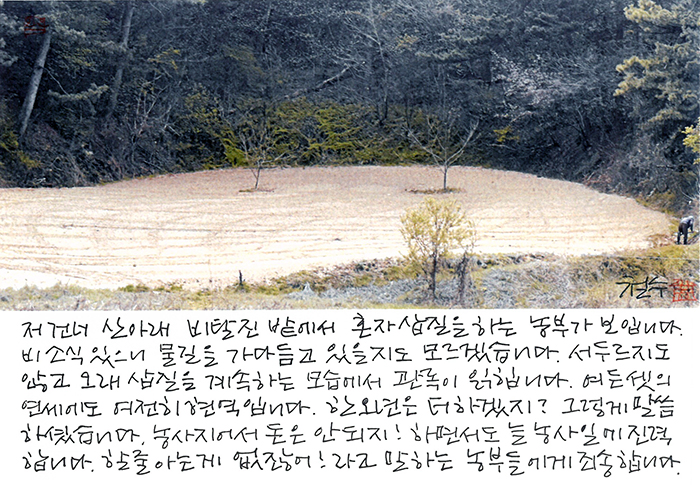 철수
저 건너 산아래 비탈진 밭에서 혼자 삽질을 하는 농부가 보입니다.
비 소식 있으니 물길을 가다듬고 있을지도 모르겠습니다. 서두르지도
않고 오래 삽질을 계속하는 모습에서 관록이 읽힙니다. 여든셋의
연세에도 여전히 현역입니다. 한 오년은 더 하겠지? 그렇게 말씀
하셨습니다. 농사지어서 돈은 안되지! 하면서도 늘 농사일에 진력
합니다. 할 줄 아는게 없잖어! 라고 말하는 농부들에게 죄송합니다.